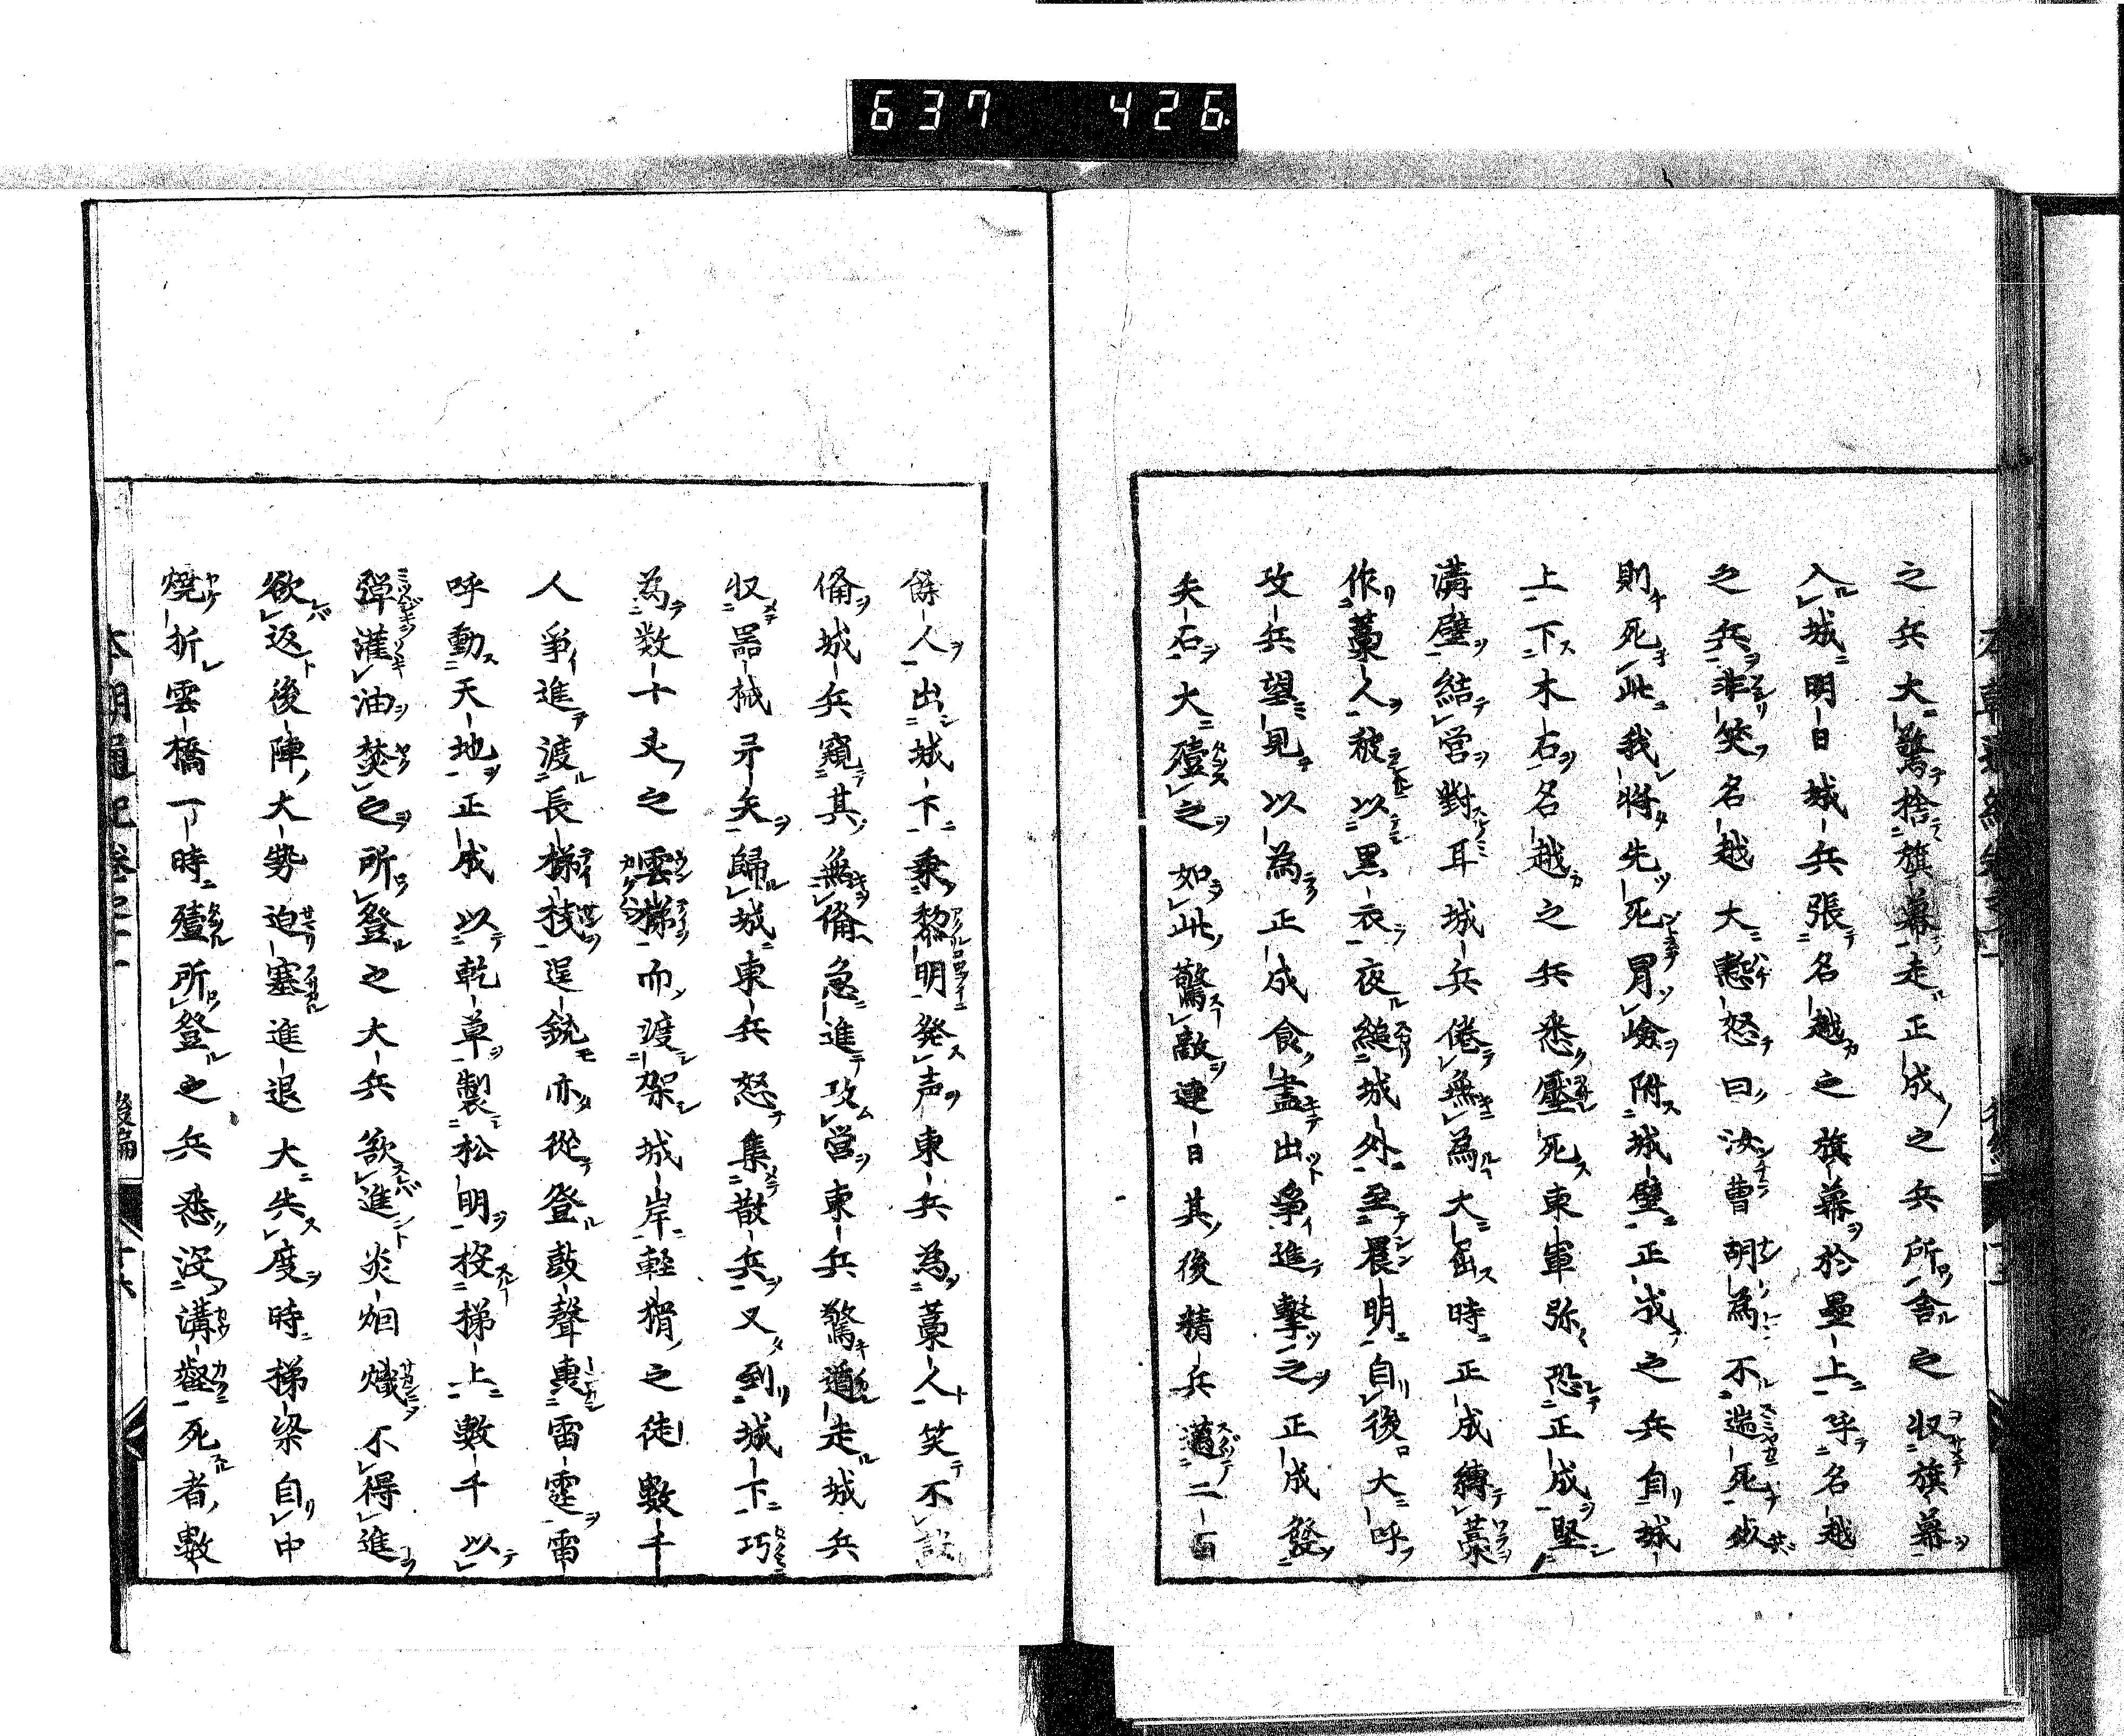 637 426
之兵大驚捨旗幕走正成之兵所舎之収旗幕
入城明日城兵張名越之旗幕於壘上呼名越
之兵非笑名越大慙怒曰汝曹胡為不遄死
則死此我將先死冒嶮附城壁正成之兵自城
上下木石名越之兵悉壓死東軍弥恐正成堅
溝壁結営對耳城兵倦無為大屈時正成縛藁
作藁人被以黒衣夜縋城外至晨明自後大呼
攻兵望見以為正成食盡出爭進擊之正成發
矢石大殪之如此驚敵連日其後精兵二百
餘人出城下乗黎明発声東兵為藁人笑不設
備城兵窺其無備急進攻営東兵驚遁走城兵
収器械弓矢歸城東兵怒集散兵又到城下巧
為数十丈之雲梯而渡架城岸軽猾之徒數千
人爭進渡長梯桟逞銃亦從登鼓聲轟雷霆雷
呼動天地正成以乾草製松明投梯上數千以
彈灌油焚之所登之大兵欲進炎烟熾不得進
欲返後陣大勢迫塞進退大失度時梯梁自中
燒折雲橋丁時殪所登之兵悉没溝壑死者數
本朝通紀巻 後編